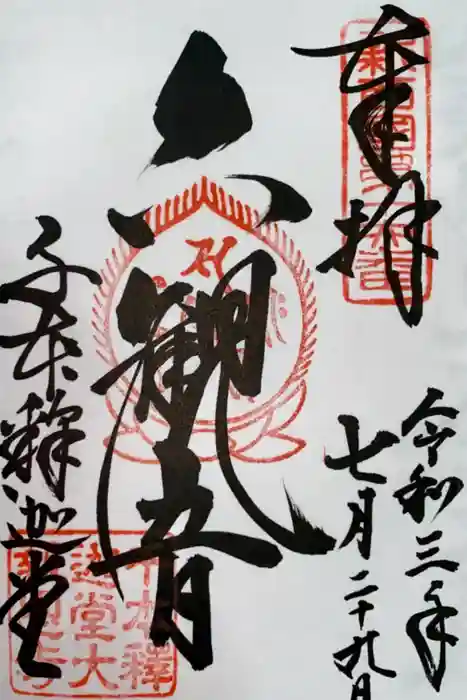 奉拝
令和三年
七月二十九日
六観音
千本釈迦堂